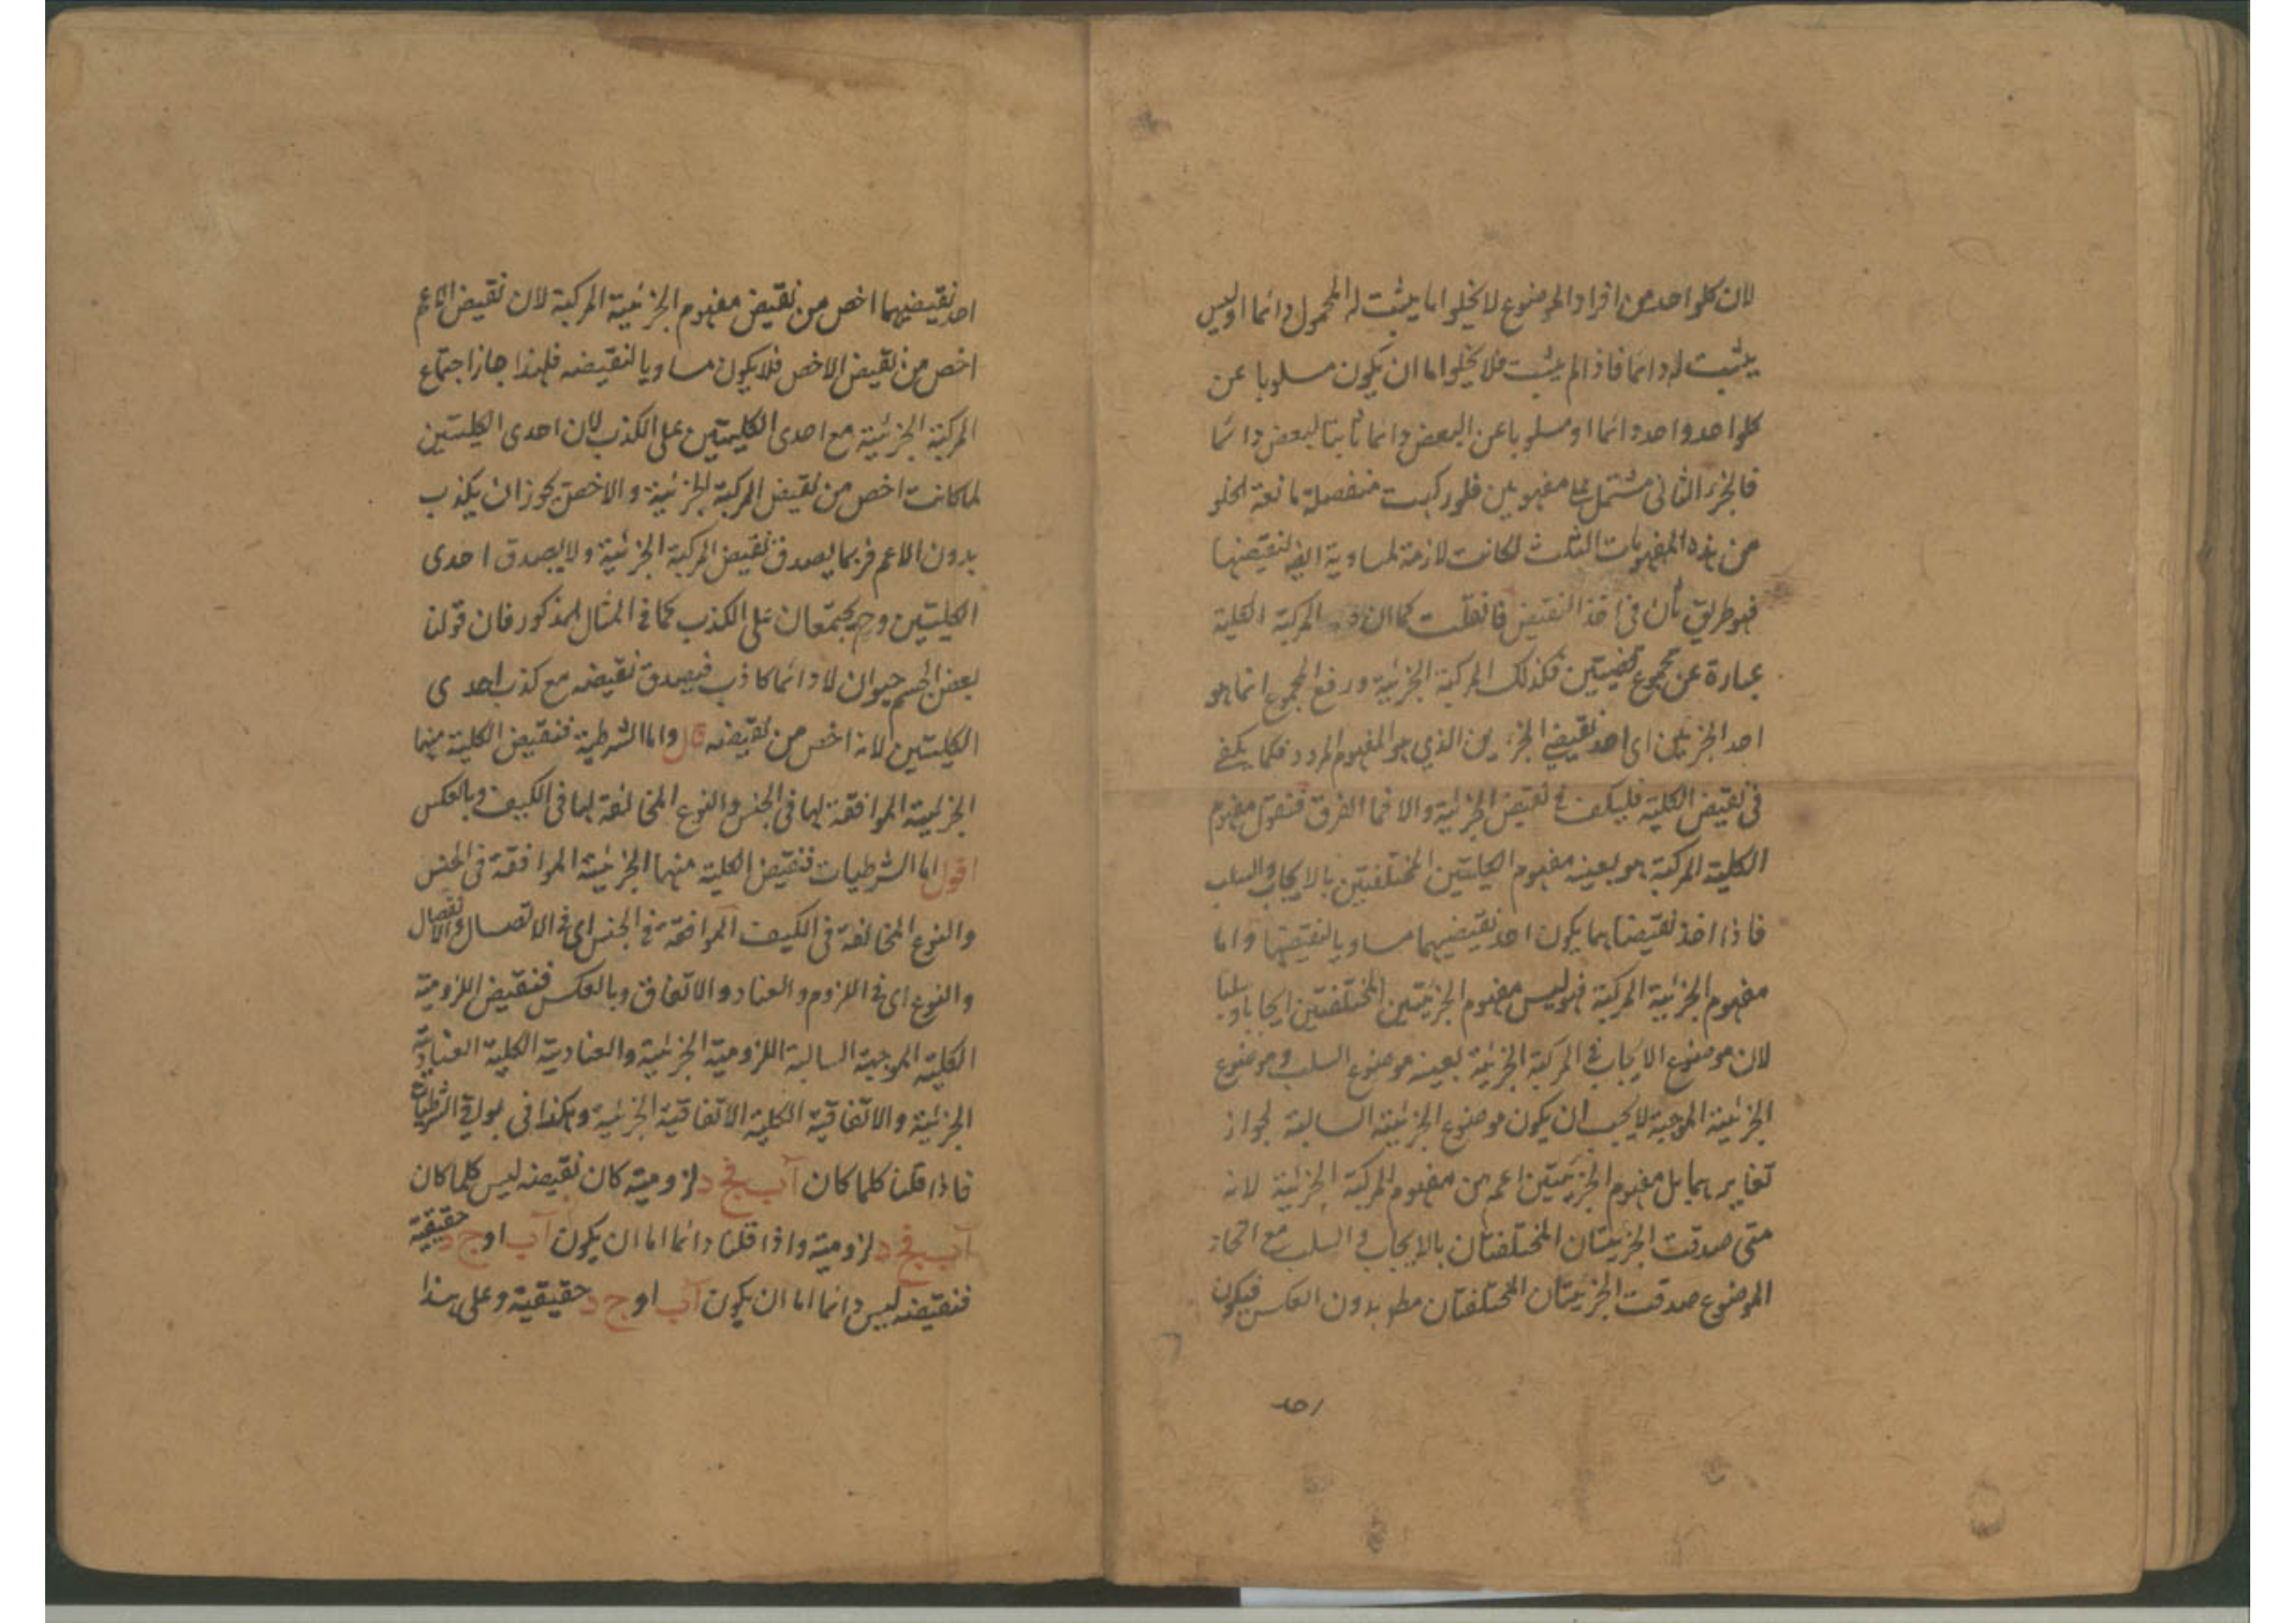 لان كلواحد من افراد الموضوع لا يخلو اما يثبت له المحمول دائما او ليس
يثبت له دائما فاذا لم يثبت فلا يخلو اما ان يكون مسلوبا عن
كلواحد واحد دائما او مسلوبا عن البعض دائما ثابتا لبعض دائما
فالجزء الثانى مشتمل على مفهومين فلو ركبت منفصلة مانعة الخلو
من هذه المفهومات الثلث لكانت لازمة مساوية ايضا لنقيضها
فهو طريق ثان فى اخذ النقيض فانقلت كما ان المركبة الكلية
عبارة عن مجموع قضيتين فكذلك المركبة الجزئية ورفع المجموع انما هو
احد الجزئين اى احد نقيضى الجزئين الذي هو المفهوم المردد فكما يكفي
فى نقيض الكلية فليكف فى نقيض الجزئية والا فما الفرق فنقول مفهوم
الكلية المركبة هو بعينه مفهوم الكليتين المختلفتين بالايجاب والسلب
فاذا اخذ نقيضاهما يكون احد نقيضيهما مساويا لنقيضها واما
مفهوم الجزئية المركبة فهو ليس مفهوم الجزئيتين المختلفتين ايجابا وسلبا
لان موضوع الايجاب فى المركبة الجزئية بعينه موضوع السلب وموضوع
الجزئية الموجبة لا يجب ان يكون موضوع الجزئية السالبة لجواز
تغايرهما بل مفهوم الجزئيتين اعم من مفهوم المركبة الجزئية لانه
متى صدقت الجزئيتان المختلفتان بالايجاب والسلب مع اتحاد
الموضوع صدقت الجزئيتان المختلفتان مط بدون العكس فيكون
احد
احد نقيضيهما اخص من نقيض مفهوم الجزئية المركبة لان نقيض الاعم
اخص من نقيض الاخص فلا يكون مساويا لنقيضه فلهذا جاز اجتماع
المركبة الجزئية مع احدى الكليتين على الكذب لان احدى الكليتين
لما كانت اخص من نقيض المركبة الجزئية والاخص يجوز ان يكذب
بدون الاعم فربما يصدق نقيض المركبة الجزئية ولا يصدق احدى
الكليتين وح يجتمعان على الكذب كما في المثال المذكور فان قولنا
بعض الجسم حيوان لا دائما كاذب فيصدق نقيضه مع كذب احدى
الكليتين لانه اخص من نقيضه قال واما الشرطية فنقيض الكلية منها
الجزئية الموافقة لها فى الجنس والنوع المخالفة لها فى الكيف وبالعكس
اقول اما الشرطيات فنقيض الكلية منها الجزئية الموافقة فى الجنس
والنوع المخالفة فى الكيف الموافقة فى الجنس اى فى الاتصال والانفصال
والنوع اى فى اللزوم والعناد والاتفاق وبالعكس فنقيض اللزومية
الكلية الموجبة السالبة اللزومية الجزئية والعنادية الكلية العنادية
الجزئية والاتفاقية الكلية الاتفاقية الجزئية وهكذا فى بواقى الشرطيات
فاذا قلنا كلما كان آب فج د لزومية كان نقيضه ليس كلما كان
آب فج د لزومية واذا قلنا دائما اما ان يكون آب او ج د حقيقية
فنقيضه ليس دائما اما ان يكون آب او ج د حقيقية وعلى هذا